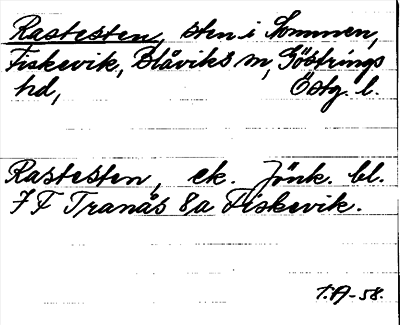 Rastesten, sten i Sommen,
Fiskevik, Blåviks sn, Göstrings
hd, Östg. l.
Rastesten, ek. Jönk. bl.
7 F Tranås 8a Fiskevik.
T.A-58.